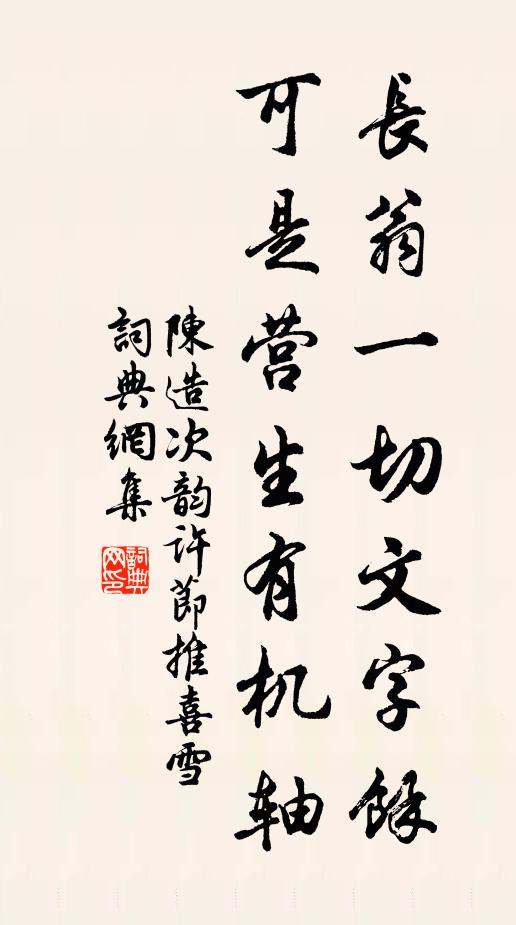 長翁一切文字餘
可是営生有机軸
陳造次韵許節推喜雪
詞典網集
詞典网印